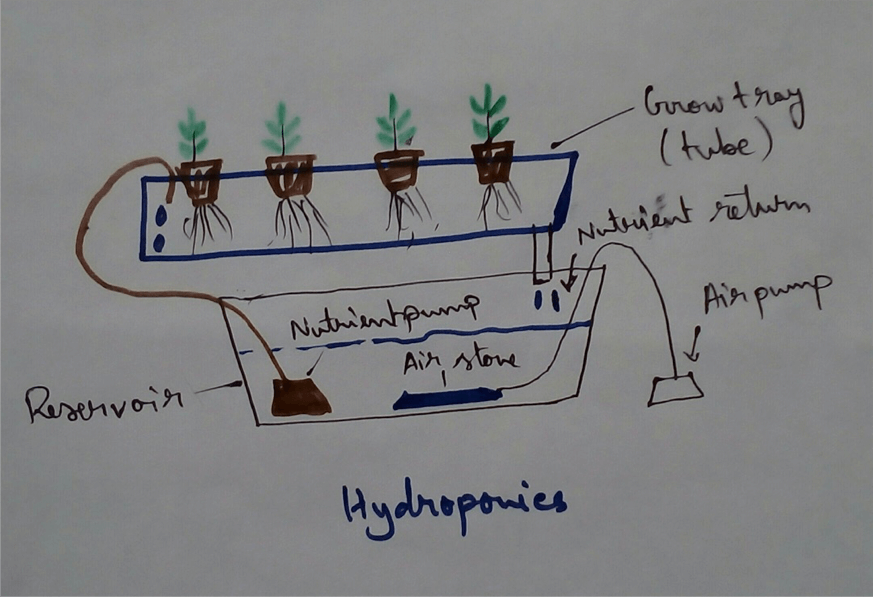 Grow tray
(tube)
Nutrient return
Air pump
Nutrient pump
Air stone
Reservoir
Hydroponics